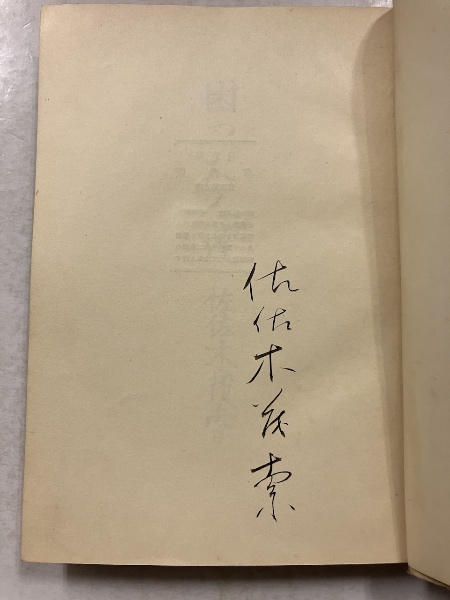 佐佐木茂索